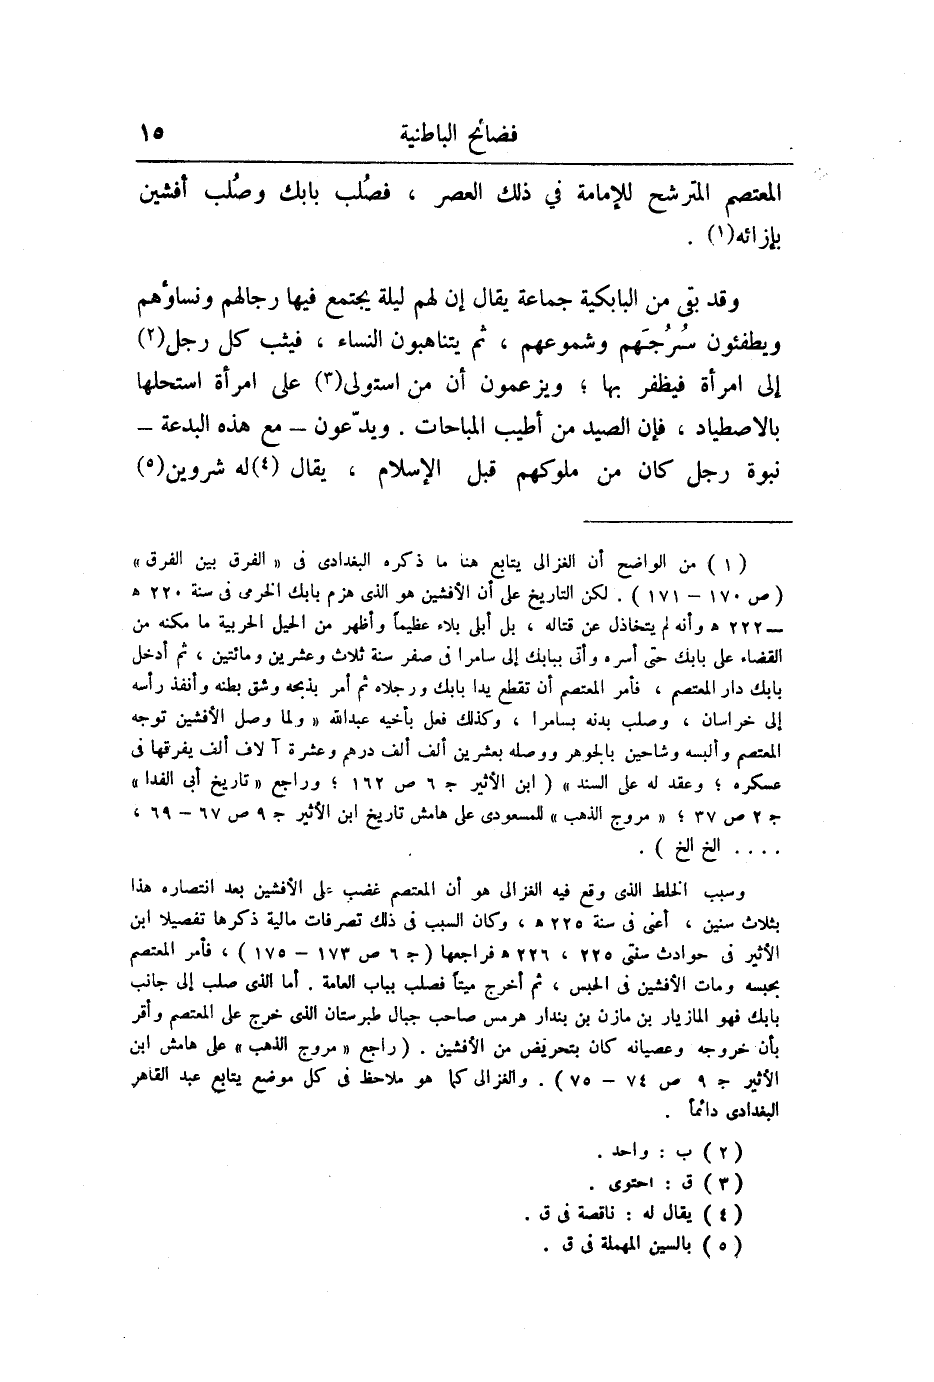 فضائح الباطنية ١٥
المعتصم المترشح للإمامة في ذلك العصر ، فصُلب بابك وصُلب أفشين
بإزائه(١) .
وقد بقى من البابكية جماعة يقال إن لهم ليلة يجتمع فيها رجالهم ونساؤهم
ويطفئون سُرُجَهم وشموعهم ، ثم يتناهبون النساء ، فيثب كل رجل(٢)
إلى امرأة فيظفر بها ؛ ويزعمون أن من استولى(٣) على امرأة استحلها
بالاصطياد ، فإن الصيد من أطيب المباحات . ويدّعون — مع هذه البدعة —
نبوة رجل كان من ملوكهم قبل الإسلام ، يقال (٤)له شروين(٥)
(١) من الواضح أن الغزالى يتابع هنا ما ذكره البغدادى فى « الفرق بين الفرق »
( ص ١٧٠ – ١٧١ ) . لكن التاريخ على أن الأفشين هو الذى هزم بابك الخرمى فى سنة ٢٢٠ ه
— ٢٢٢ ه وأنه لم يتخاذل عن قتاله ، بل أبلى بلاء عظيماً وأظهر من الحيل الحربية ما مكنه من
القضاء على بابك حتى أسره وأتى ببابك إلى سامرا فى صفر سنة ثلاث وعشرين ومائتين ، ثم أدخل
بابك دار المعتصم ، فأمر المعتصم أن تقطع يدا بابك ورجلاه ثم أمر بذبحه وشق بطنه وأنفذ رأسه
إلى خراسان ، وصلب بدنه بسامرا ، وكذلك فعل بأخيه عبدالله « ولما وصل الأفشين توجه
المعتصم وألبسه وشاحين بالجوهر ووصله بعشرين ألف ألف درهم وعشرة آلاف ألف يفرقها فى
عسكره ؛ وعقد له على السند » ( ابن الأثير ج ٦ ص ١٦٢ ؛ وراجع « تاريخ أبى الفدا »
ج ٢ ص ٣٧ ؛ « مروج الذهب » للمسعودى على هامش تاريخ ابن الأثير ج ٩ ص ٦٧ – ٦٩ ،
. . . . الخ الخ ) .
وسبب الخلط الذى وقع فيه الغزالى هو أن المعتصم غضب على الأفشين بعد انتصاره هذا
بثلاث سنين ، أعنى فى سنة ٢٢٥ ه ، وكان السبب فى ذلك تصرفات مالية ذكرها تفصيلا ابن
الأثير فى حوادث سنتى ٢٢٥ ، ٢٢٦ ه فراجعها ( ج ٦ ص ١٧٣ – ١٧٥ ) ، فأمر المعتصم
بحبسه ومات الأفشين فى الحبس ، ثم أخرج ميتاً فصلب بباب العامة . أما الذى صلب إلى جانب
بابك فهو المازيار بن مازن بن بندار هرمس صاحب جبال طبرستان الذى خرج على المعتصم وأقر
بأن خروجه وعصيانه كان بتحريض من الأفشين . ( راجع « مروج الذهب » على هامش ابن
الأثير ج ٩ ص ٧٤ – ٧٥ ) . والغزالى كما هو ملاحظ فى كل موضع يتابع عبد القاهر
البغدادى دائماً .
(٢) ب : واحد .
(٣) ق : احتوى .
(٤) يقال له : ناقصة فى ق .
(٥) بالسين المهملة فى ق .